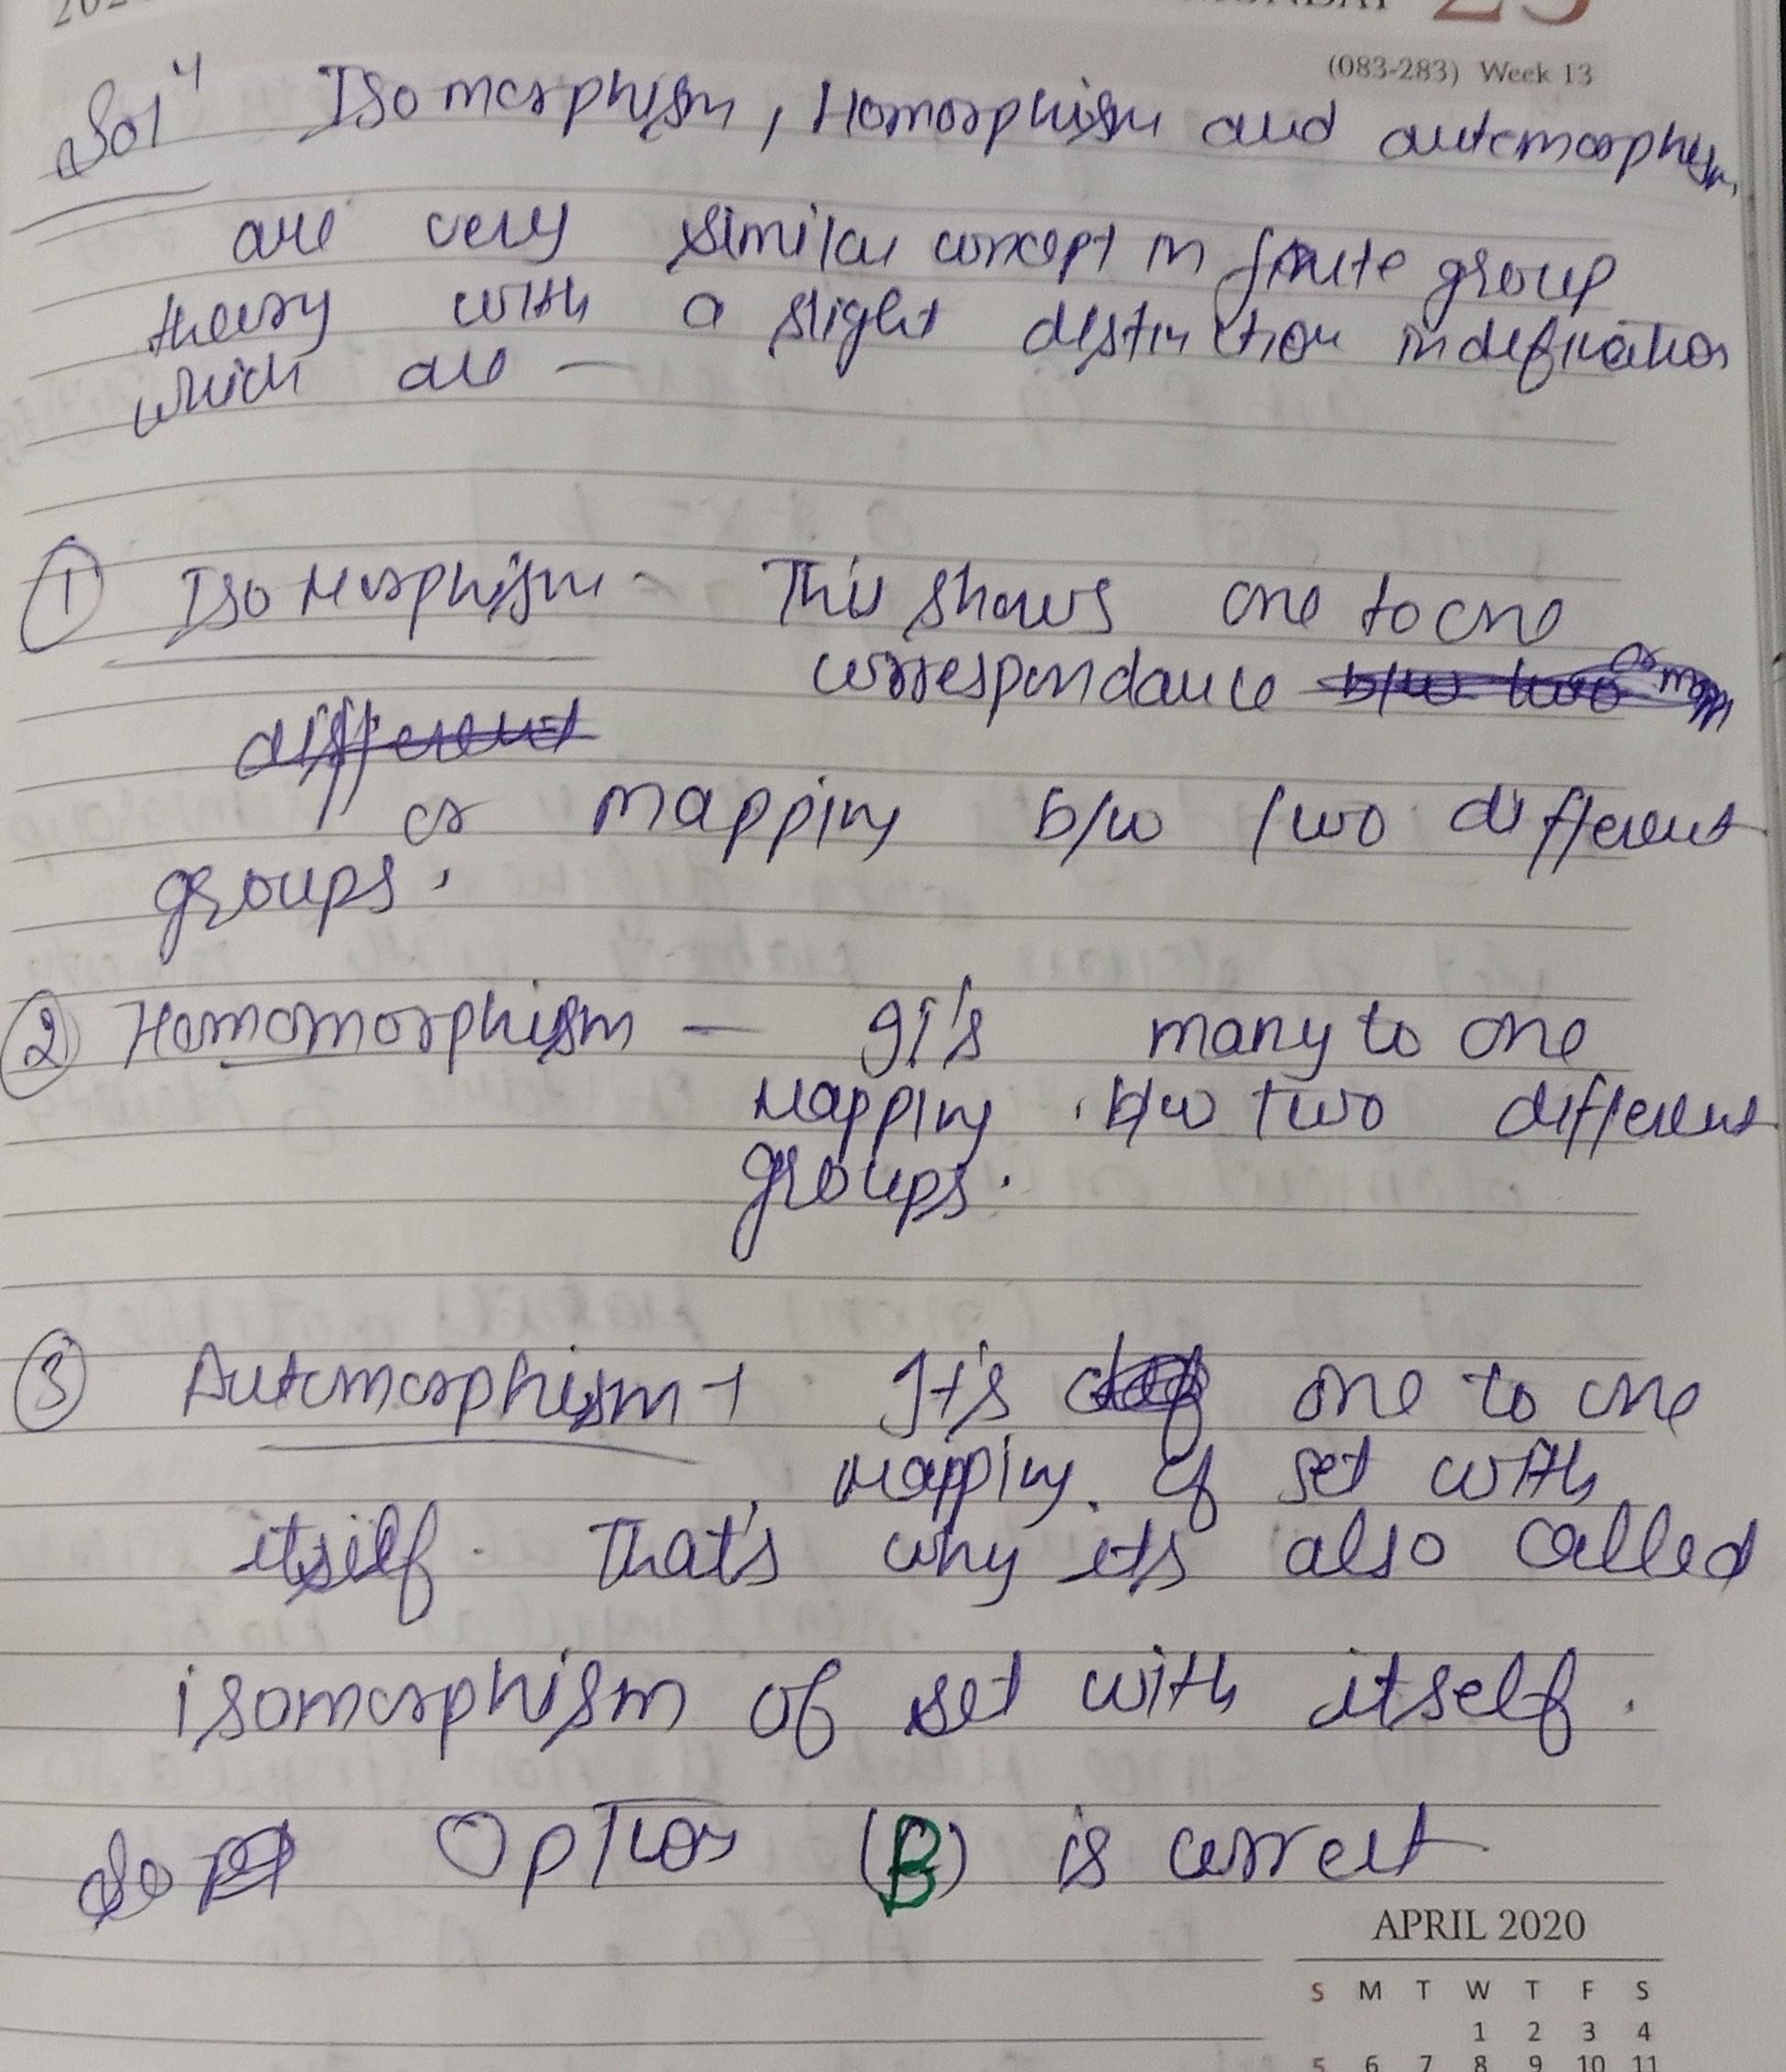 (083-283) Week 13
Solⁿ Isomorphism, Homorphism and automorphism
are very similar concept in finite group
theory with a slight distinction in defination
which are —
① Iso Morphism - This shows one to one
correspondance b/w two
different
or mapping b/w two different
groups.
② Homomorphism — It's many to one
Mapping b/w two different
groups.
③ Automorphism → It's one to one
Mapping of set with
itself. That's why it's also called
isomorphism of set with itself.
So Option (B) is correct
APRIL 2020
S M T W T F S
1 2 3 4
5 6 7 8 9 10 11